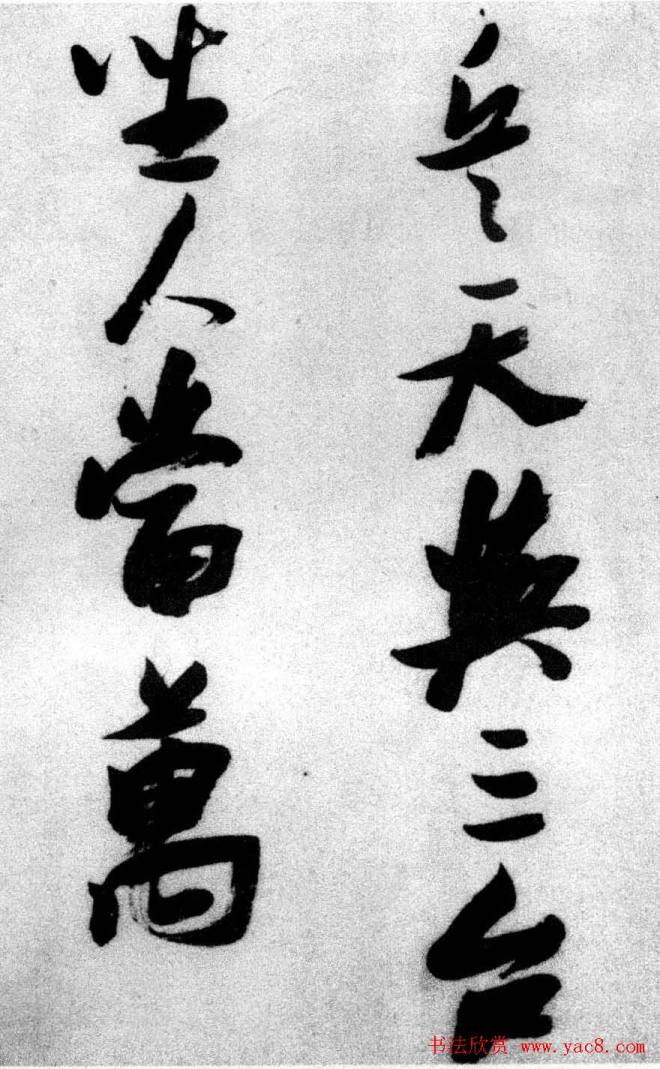 兵天與三台
坐人當萬
书法欣赏 www.yac8.com